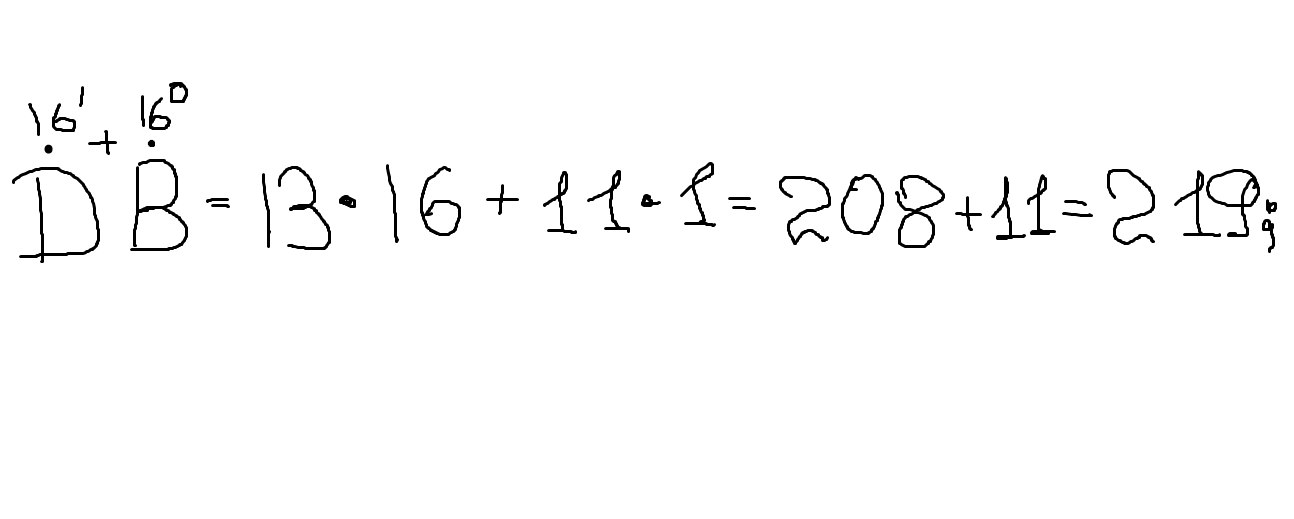 16¹ + 16⁰
DB = 13 · 16 + 11 · 1 = 208 + 11 = 219;